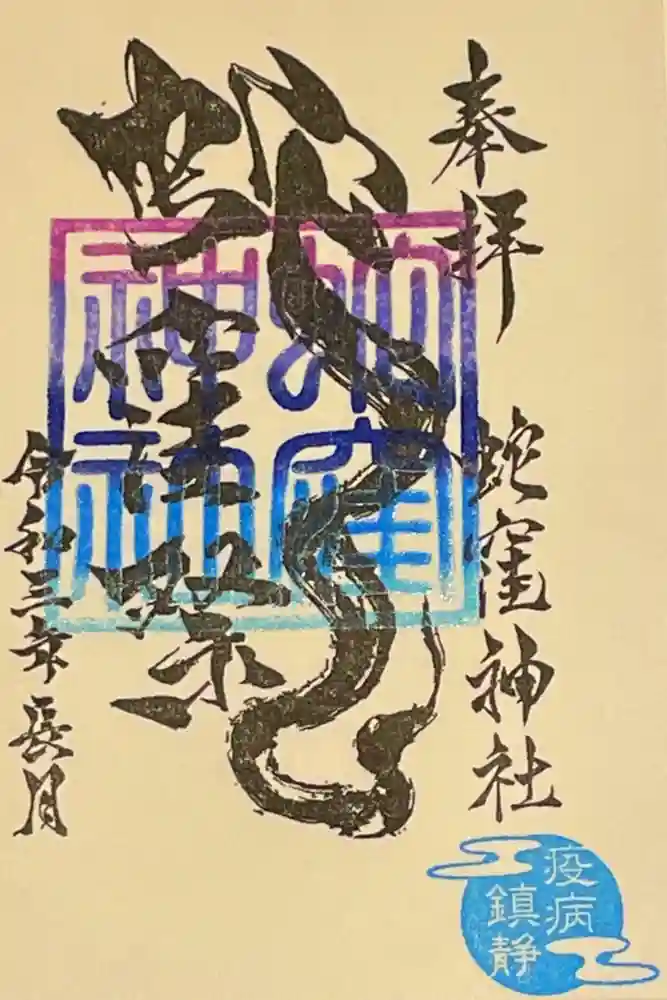 奉拝
蛇窪神社
蛇窪
神社
令和三年長月
疫病
鎮静